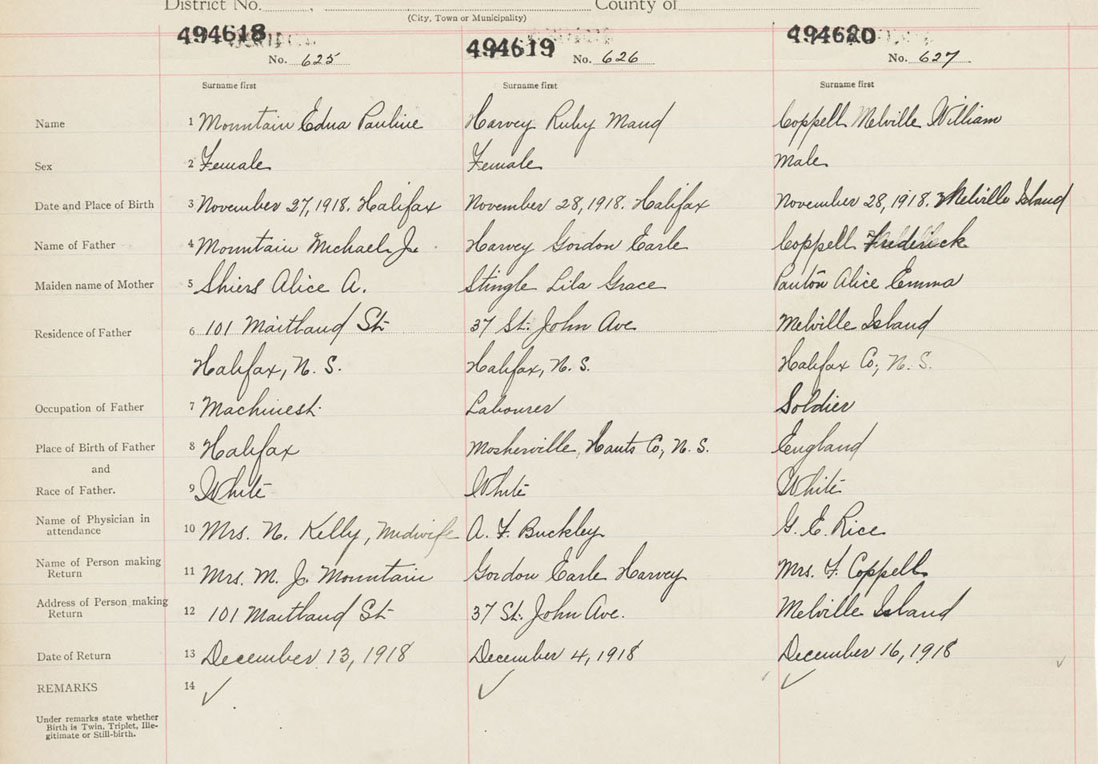 District No. , County of
(City, Town or Municipality)
494618 494619 494620
No. 625 No. 626 No. 627
Surname first Surname first Surname first
Name 1 Mountain Edna Pauline Harvey Ruby Maud Coppell Melville William
Sex 2 Female Female Male
Date and Place of Birth 3 November 27, 1918. Halifax November 28, 1918. Halifax November 28, 1918. Melville Island
Name of Father 4 Mountain Michael J. Harvey Gordon Earle Coppell Frederick
Maiden name of Mother 5 Shiers Alice A. Stingle Lila Grace Panton Alice Emma
Residence of Father 6 101 Maitland St 37 St. John Ave Melville Island
Halifax, N. S. Halifax, N. S. Halifax Co, N. S.
Occupation of Father 7 Machinest Labourer Soldier
Place of Birth of Father 8 Halifax Mosherville, Hants Co, N. S. England
and
Race of Father. 9 White White White
Name of Physician in
attendance 10 Mrs. N. Kelly, Midwife A. F. Buckley G. E. Rice
Name of Person making
Return 11 Mrs. M. J. Mountain Gordon Earle Harvey Mrs. F. Coppell
Address of Person making
Return 12 101 Maitland St 37 St. John Ave. Melville Island
Date of Return 13 December 13, 1918 December 4, 1918 December 16, 1918
REMARKS 14 ✓ ✓ ✓
Under remarks state whether
Birth is Twin, Triplet, Ille-
gitimate or Still-birth.